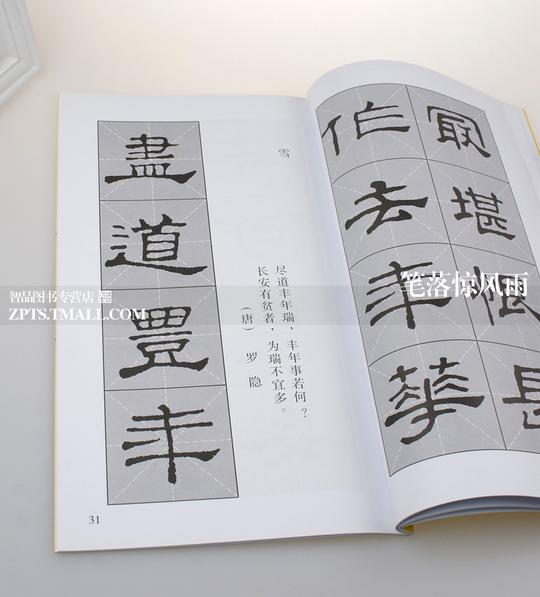 最堪
作去年華
雪
尽道丰年瑞，丰年事若何？
长安有贫者，为瑞不宜多。
（唐） 罗隐
盡道豐年
31
智品图书专营店
ZPTS.TMALL.COM
笔落惊风雨